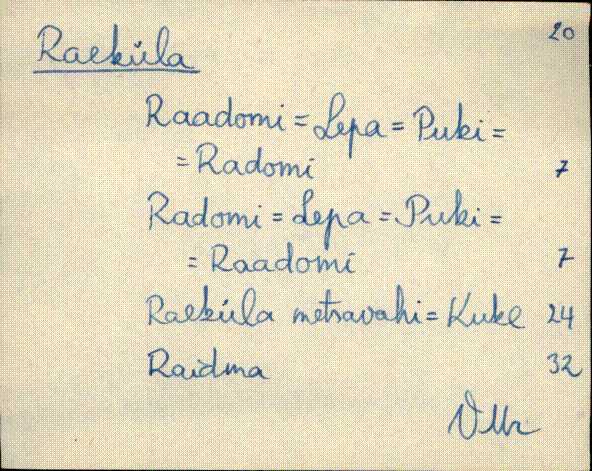 20
Raeküla
Raadomi = Lepa = Puki =
= Radomi 7
Radomi = Lepa = Puki =
= Raadomi 7
Raeküla metsavahi = Kuke 24
Raidma 32
VMr